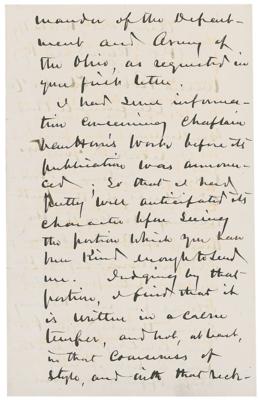 mander of the Depart-
ment and Army of
the Ohio, as requested in
your first letter.
I had some informa-
tion concerning Chaplain
Van Horne's Work before its
publication was announ-
ced; So that I had
pretty well anticipated its
character before seeing
the portion which you have
been kind enough to send
me. Judging by that
portion, I find that it
is written in a calm
temper, and not, at least,
in that coarseness of
style, and with that reck-